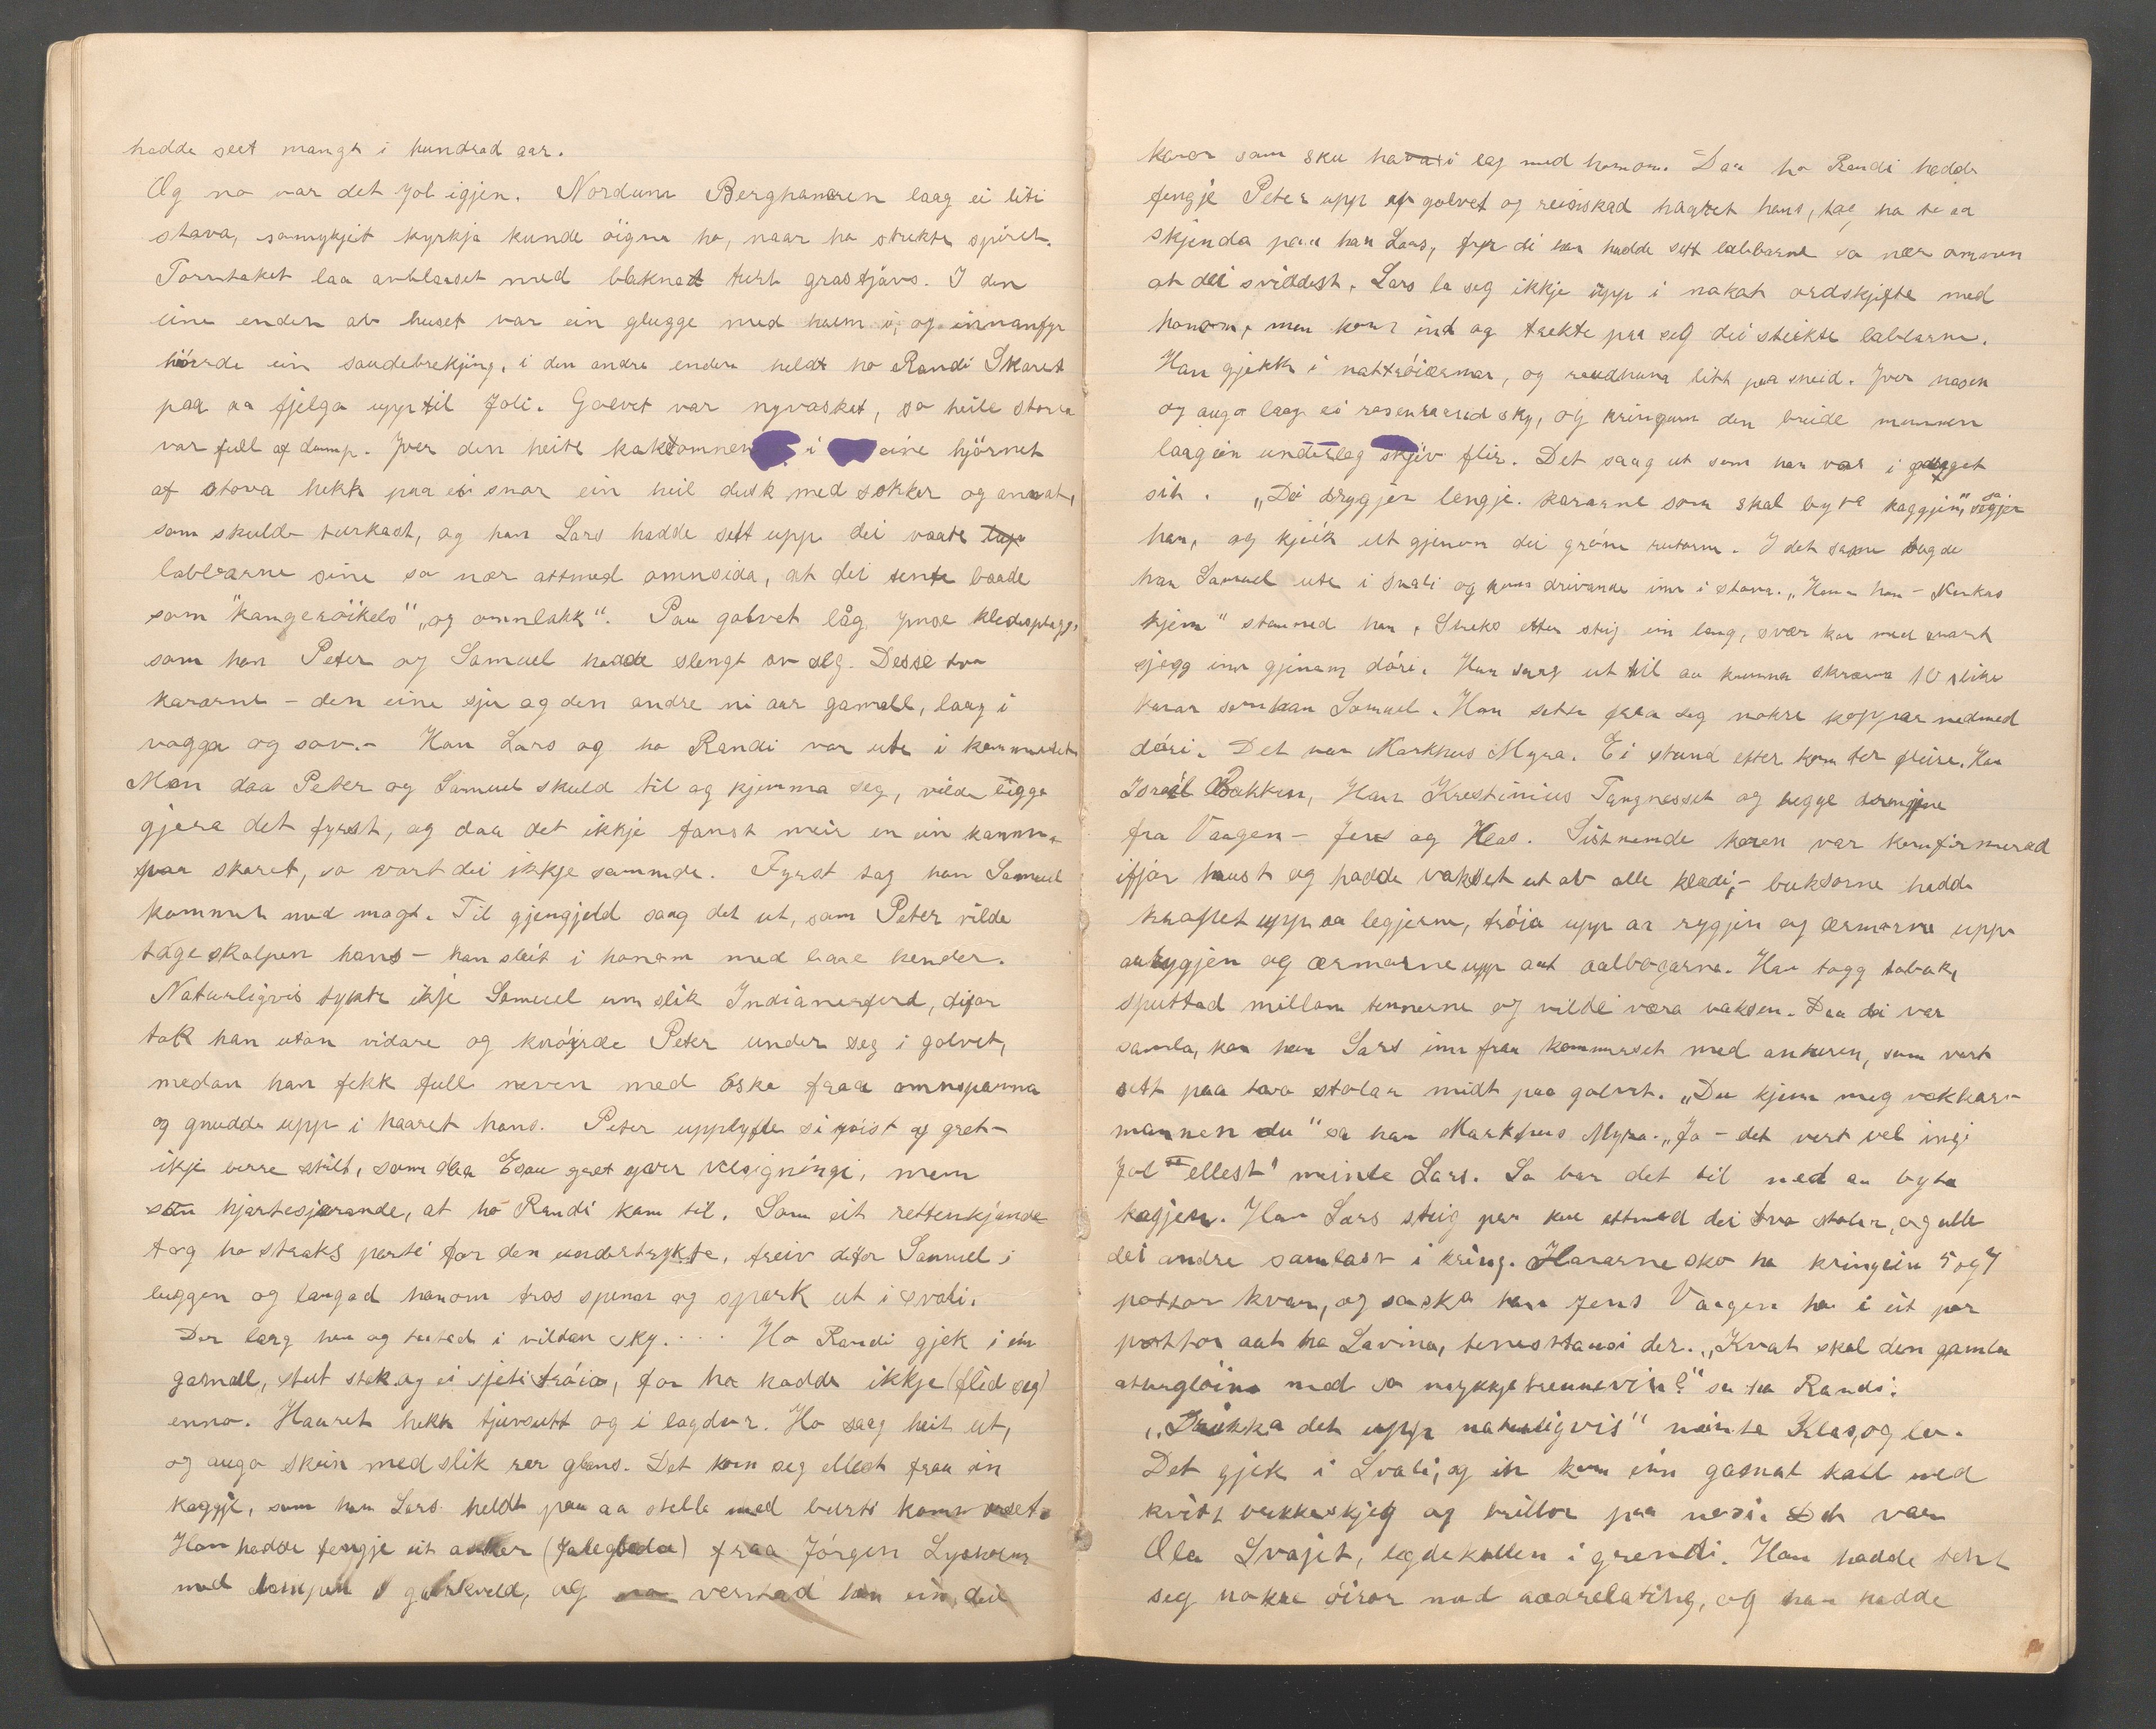 hadde seet mangt i hundrad aar.
Og no var det Jol igjen. Nordum Berghamaren laag ei liti
stova, somykjit kyrkja kunde öigna ho, naar ho strekte spiret.
Torvtaket laa avblaaset med bleknat turt grastjavs. I den
eine enden av huset var ein glugge med halm i, og innanfyr
höirde ein saudebrekjing, i den andre enden heldt ho Randi Skaret
paa aa fjelga upp til Joli. Golvet var nyvasket, so heile stova
var full af damp. Yver den heite kakkomnen i eine hjörnet
af stova hekk paa ei snor ein heil dusk med sokker og annat,
som skulde turkast, og han Lars hadde sett upp dei vaate
labbarne sine so nær attmed omnsida, at dei tente baade
som "kangeröikels" "og omnlakk". Paa golvet låg ymse klædsplagg,
som han Peter og Samuel hadde slengt av seg. Desse två
kararne - den eine sju og den andre ni aar gamall, laag i
vogga og sov. - Han Lars og ho Randi var ute i kammerset
Men daa Peter og Samuel skuld til og kjemma seg, vilde begge
gjera det fyrst, og daa det ikkje fanst meir en ein kamm
paa skaret, so vart dei ikkje sammde. Fyrst tog han Samuel
kammen med magt. Til gjengjeld saag det ut, som Peter vilde
tage skalpen hans - han sleit i honom med baae hender.
Naturligvis tykte ikje Samuel um slik Indianerferd, difor
tok han utan vidare og knöjrde Peter under seg i golvet,
medan han fekk full neven med oska fraa omnspanna
og gnudde upp i haaret hans. Peter upplyfte si röist og gret -
ikje berre stilt, som daa Esau gret yver velsigningi, men
so hjartesjerande, at ho Randi kom til. Som eit rettenkjande
tog ho straks parti for den undertrykte, treiv difor Samuel i
luggen og langad honom tros spenar og spark ut i svoli.
Der laag han og tutad i vildan sky. . . . Ho Randi gjek i ein
gamall, stut stak og ei sjeti tröia, for ho hadde ikkje (flid seg)
enno. Haaret hekk tjuvsutt og i lagdar. Ho saag heit ut,
og augo skein med slik rar glans. Det kom seg ellest fraa ein
kaggje, som han Lars heldt paa aa stella med burti kammerset.
Han hadde fengje eit anker (Jolegleda) fraa Jörgen Lysholm
med dampen i gaarkveld, og ventad han ein del
karar som sku hava i lag med honom. Daa ho Randi hadde
fengje Peter upp af golvet og reisskad haaret hans, tog ho te aa
skjenda paa han Lars, fyr di han hadde sett labbarne so nær omnen
at dei sviddest. Lars la seg ikkje upp i nokat ordskjifte med
honom, men kom ind og trekte paa seg dei steikte labbarne.
Han gjekk i nattröiærmar, og raudhuva litt paa sneid. Yver nasen
og augo laag ei rosenraud sky, og kringum den breide munnen
laag ein underleg skjiv flir. Det saag ut som han var i gagget
sit. "Dei dryggjer lengje. kararne som skal byta kaggjin", sa
han, og kjeik ut gjenom dei gröne rutorne. I det same tagde
han Samuel ute i Svali og kom drivande inn i stova. "Han - han - Markus
kjem" stammed han. Straks etter steig ein lang, svær kar med svart
sjegg inn gjenom döri. Han saag ut til aa kunna skræma 10 slike
karar som han Samuel. Han sette fraa seg nokre koppar nedmed
döri. Det var Markhus Myra. Ei stund etter kom der fleire. Han
Israel Bakken, Han Krestinius Tangnesset og begge drengjene
fra Vaagen - Jens og Klas. Sistnemde karen var konfirmerad
ifjor haust og hadde vakset ut av alle klædi, - buksorne hadde
kraflet upp aa legjerne, tröia upp aa rygjin og ærmarne upp
aa rygjen og ærmarne upp aat aalbogarne. Han togg tobak,
sputtad millom tennerne og vilde væra vaksen. Daa dei var
samla, kom han Lars inn fraa kammerset med ankeren, som vart
sett paa tvo stolar midt paa golvet. "Du kjem meg vekkar-
mannen du" sa han Markhus Myra. "Ja - det vert vel ingi
Jol ellest" meinte Lars. So bar det til med aa byta
kagjen. Han Lars steig paa kne attmed dei tvo stolar, og alle
dei andre samlast i kring. Kararne sko ha kringein 5 og 7
pottor kvar, og so ska han Jens Vaagen ha i eit par
pottor aat ha Lavina, tenesttausi der. "Kvat skal den gamla
med so mykkje brennevin?" sa ho Randi.
"Drikka det upp naturligvis" meinte Klas, og lo.
Det gjek i Svali, og in kom ein gamal kall med
kvitt bukkeskjeg og brillor paa nosi. Det var
Ola Svajet, legdekallen i grendi. Han hadde tent
seg nokre öiror med aadrelating, og han hadde